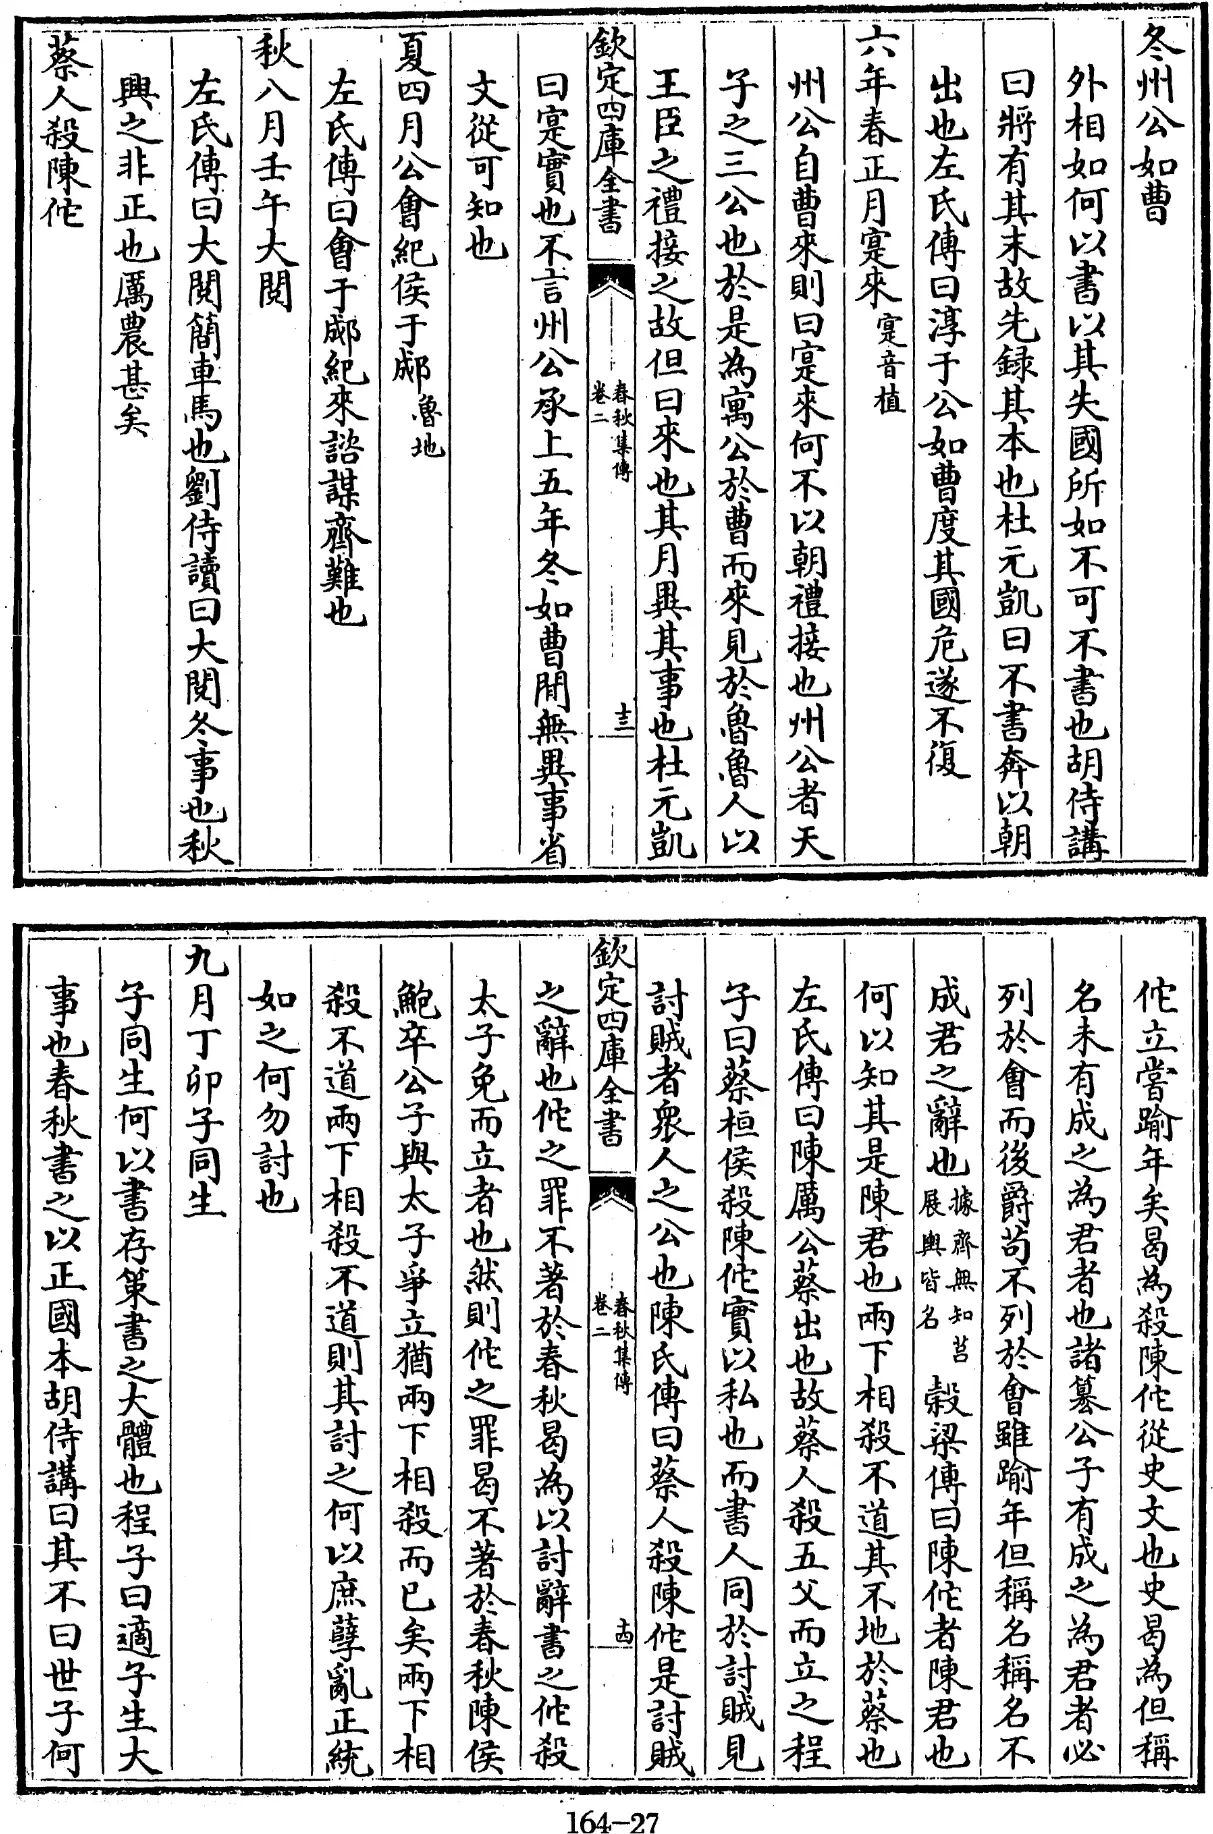 冬州公如曹
外相如何以書以其失國所如不可不書也胡侍講
曰將有其末故先録其本也杜元凱曰不書奔以朝
出也左氏傳曰淳于公如曹度其國危遂不復
六年春正月寔來寔音植
州公自曹來則曰寔來何不以朝禮接也州公者天
子之三公也於是為寓公於曹而來見於魯魯人以
王臣之禮接之故但曰來也其月異其事也杜元凱
欽定四庫全書
春秋集傳
卷二
十三
曰寔實也不言州公承上五年冬如曹間無異事省
文從可知也
夏四月公會紀侯于郕魯地
左氏傳曰會于郕紀來諮謀齊難也
秋八月壬午大閲
左氏傳曰大閲簡車馬也劉侍讀曰大閲冬事也秋
興之非正也厲農甚矣
蔡人殺陳佗
佗立當踰年矣曷為殺陳佗從史文也史曷為但稱
名未有成之為君者也諸簒公子有成之為君者必
列於會而後爵苟不列於會雖踰年但稱名稱名不
成君之辭也據齊無知莒展輿皆名穀梁傳曰陳佗者陳君也
何以知其是陳君也兩下相殺不道其不地於蔡也
左氏傳曰陳厲公蔡出也故蔡人殺五父而立之程
子曰蔡桓侯殺陳佗實以私也而書人同於討賊見
討賊者衆人之公也陳氏傳曰蔡人殺陳佗是討賊
欽定四庫全書
春秋集傳
卷二
十四
之辭也佗之罪不著於春秋曷為以討辭書之佗殺
太子免而立者也然則佗之罪曷不著於春秋陳侯
鮑卒公子與太子爭立猶兩下相殺而已矣兩下相
殺不道兩下相殺不道則其討之何以庶孽亂正統
如之何勿討也
九月丁卯子同生
子同生何以書存策書之大體也程子曰適子生大
事也春秋書之以正國本胡侍講曰其不曰世子何
164-27